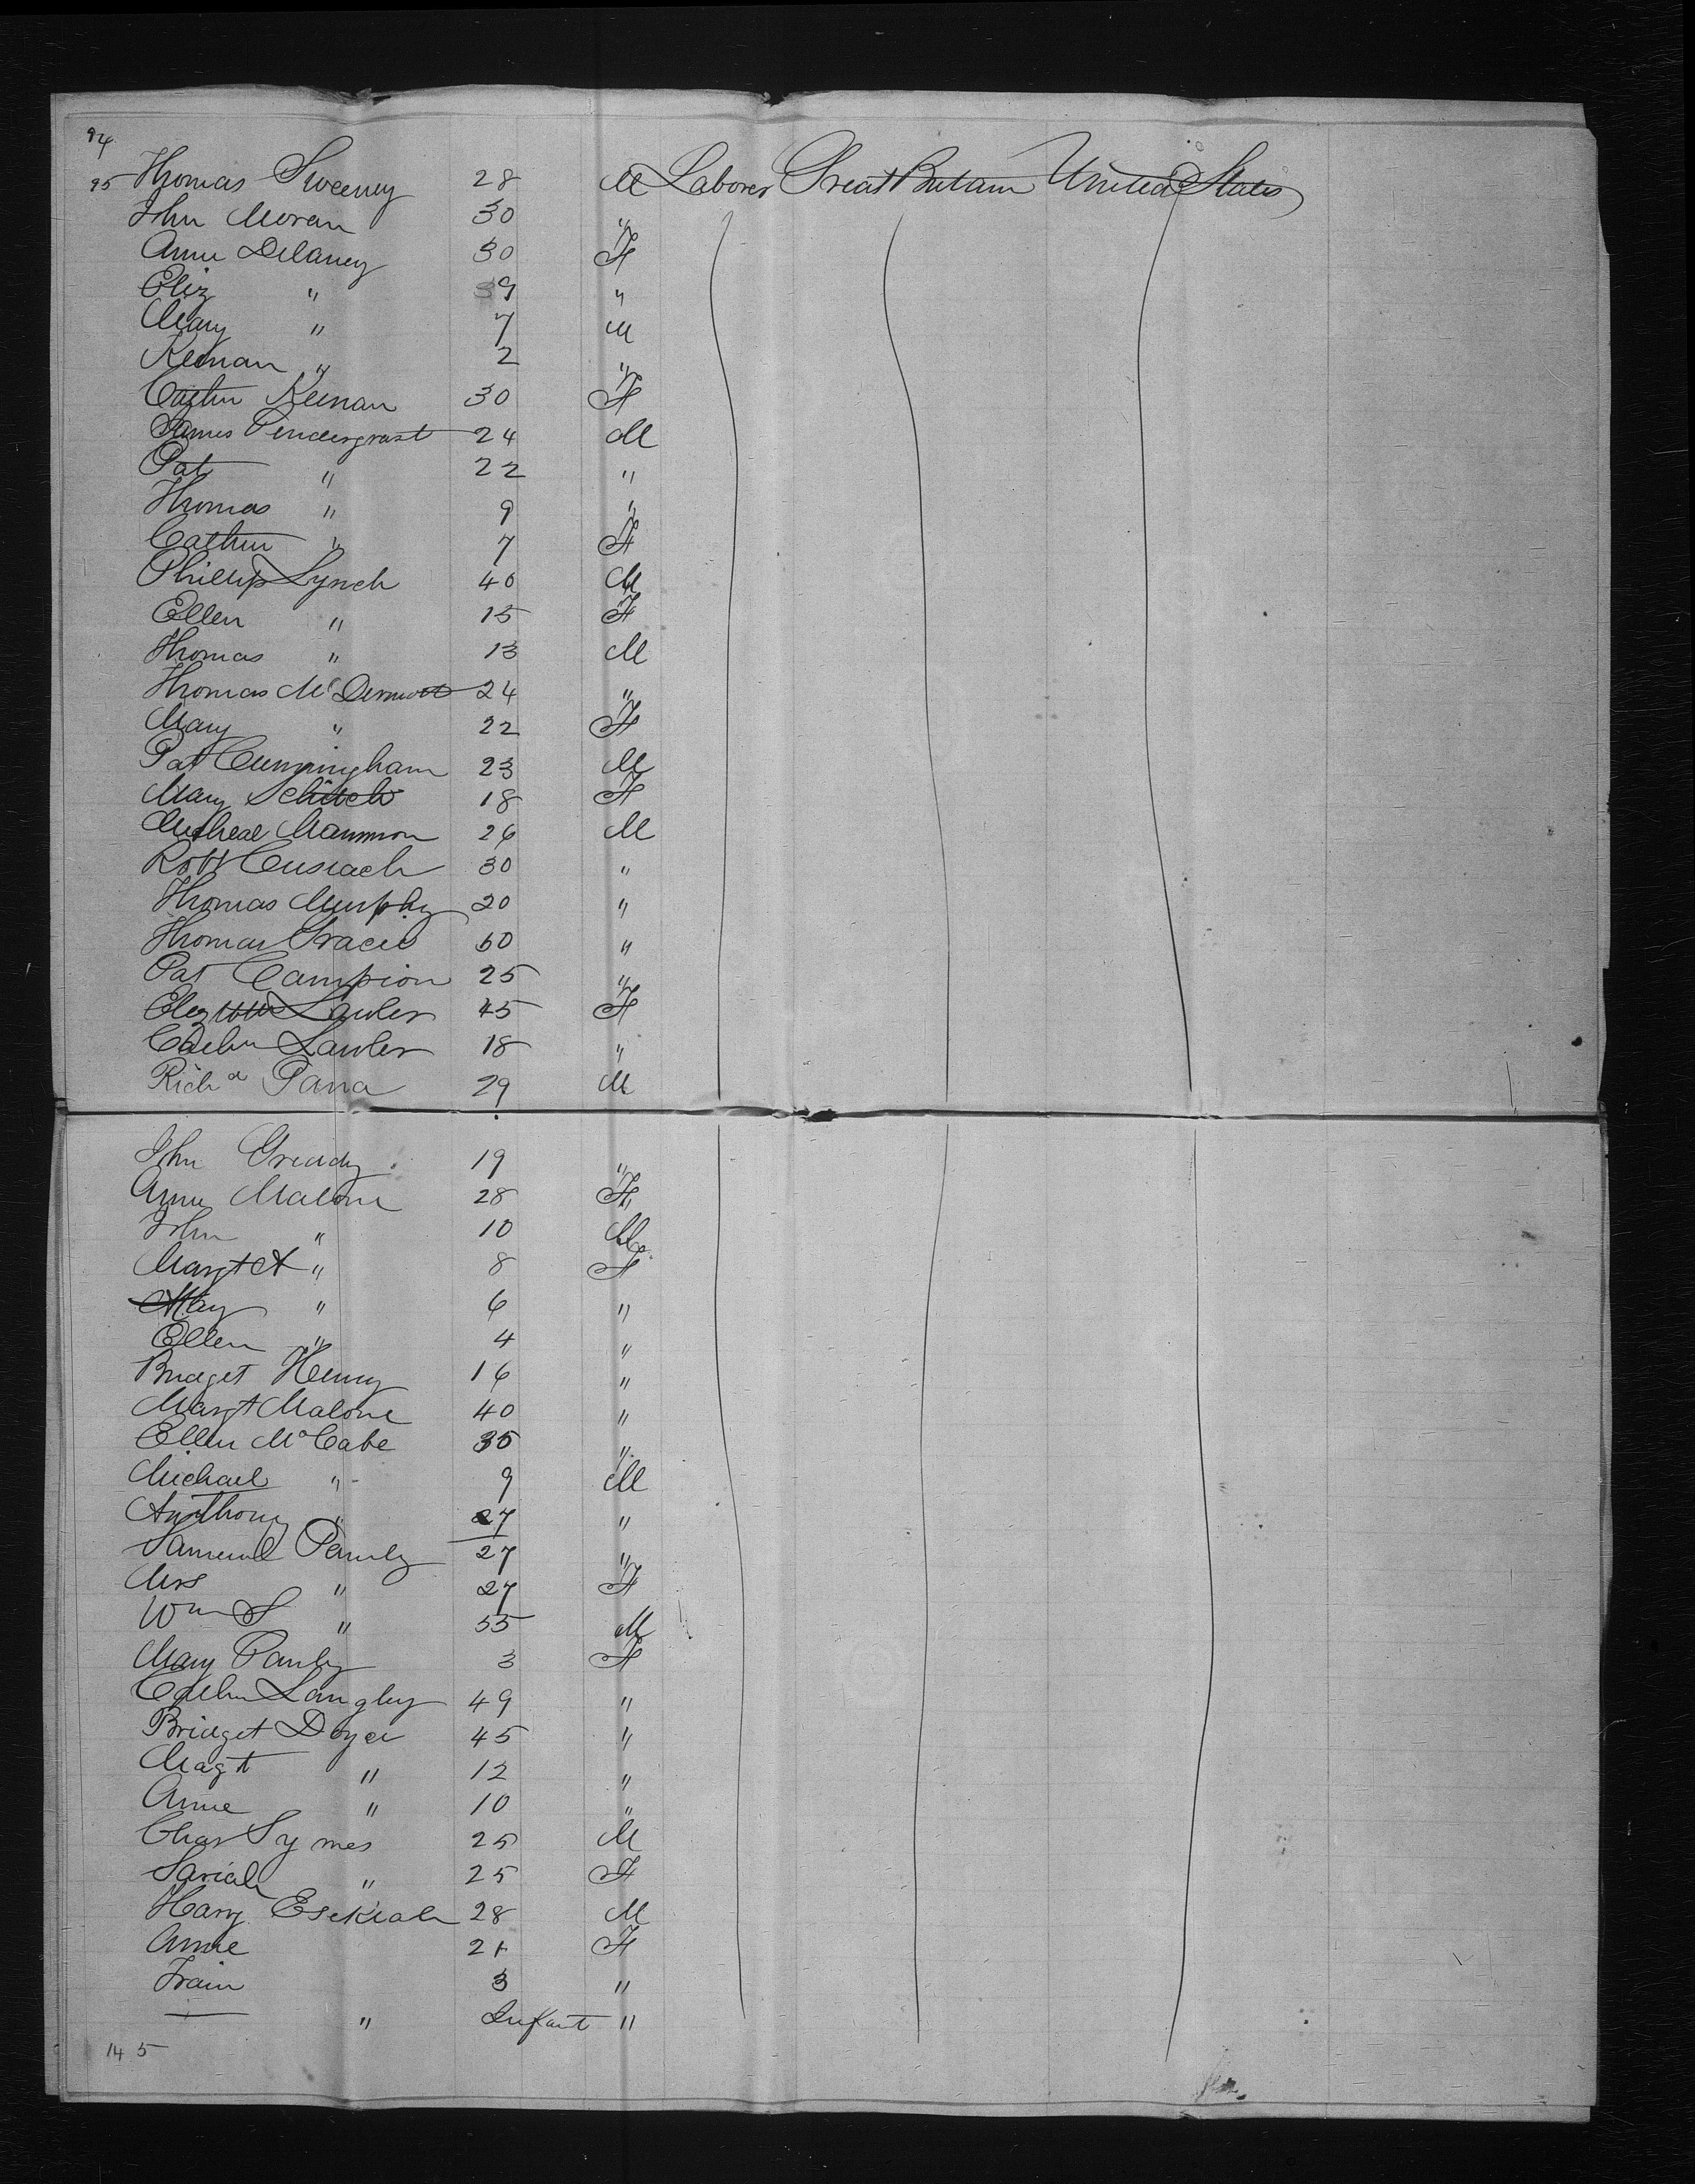 94
95 Thomas Sweeney 28 M Laborer Great Britain United States
John Moran 30 "
Anne Delaney 30 F
Eliz " 39 "
Mary " 7 M
Keenan " 2 "
Cathn Keenan 30 F
James Pendergrast 24 M
Pat " 22 "
Thomas " 9 "
Cathn " 7 F
Phillip Lynch 40 M
Ellen " 15 F
Thomas " 13 M
Thomas McDermott 24 "
Mary " 22 F
Pat Cunningham 23 M
Mary 18 F
Micheal Mannion 26 M
Robt Cusiack 30 "
Thomas Murphy 20 "
Thomas Gracie 60 "
Pat Campion 25 "
Lawler 45 F
Cathn Lawler 18 "
Richd Parra 29 M
John Gready 19 "
Anne Malone 28 F
John " 10 M
Margt A " 8 F
May " 6 "
Ellen " 4 "
Bridget Henry 16 "
Margt Malone 40 "
Ellen McCabe 35 "
Michael " 9 M
Anthony " 27 "
Samuel Pauly 27 "
Mrs " 27 F
Wm S " 55 M
Mary Pauly 3 F
Cathn Langley 49 "
Bridget Doyel 45 "
Magt " 12 "
Anne " 10 "
Chas Symes 25 M
Sariah " 25 F
Harry Esekiah 28 M
Annie 21 F
3 "
— " Infant "
145